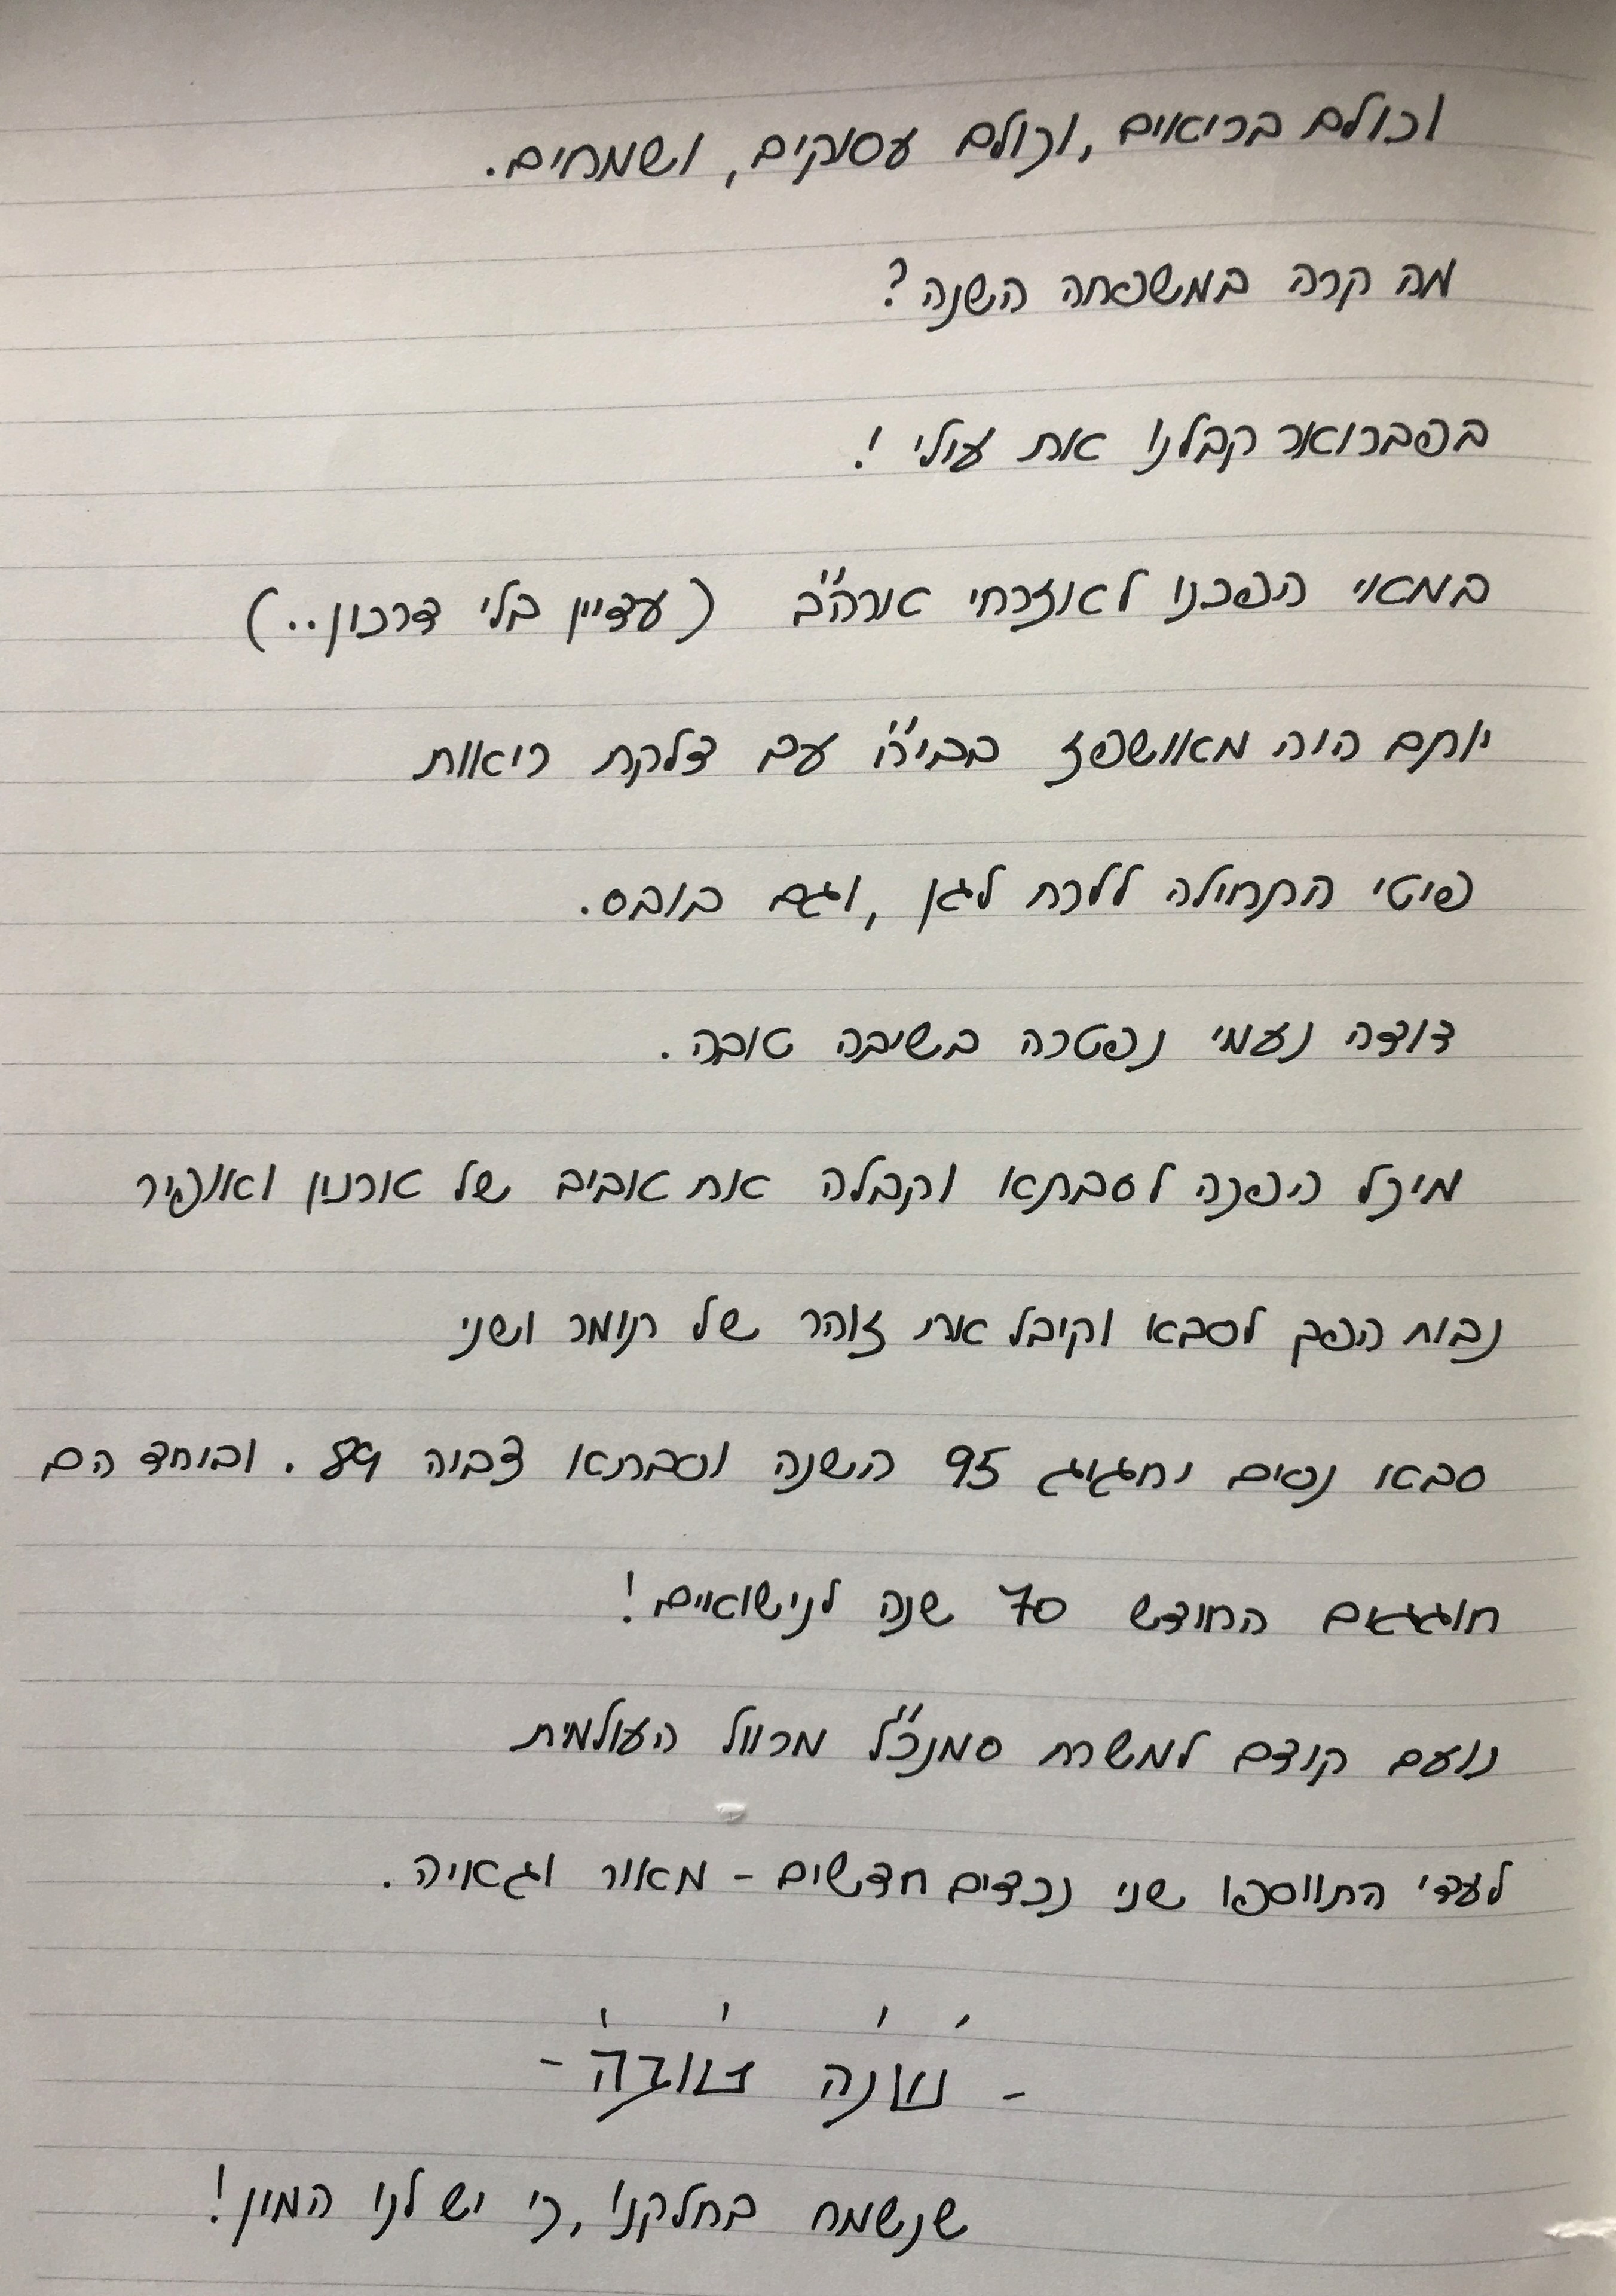 וכולם בריאים, וכולם עסוקים, ושמחים.
מה קרה במשפחה השנה?
בפברואר קבלנו את עולי!
במאי הפכנו לאזרחי ארה"ב (עדיין בלי דרכון..)
יותם היה מאושפז בבי"ח עם דלקת ריאות
פיטי התחילה ללכת לגן, וגם בובס.
דודה נעמי נפטרה בשיבה טובה.
מיכל הפכה לסבתא וקבלה את אביב של ארנון ואופיר
נבות הפך לסבא וקיבל את זוהר של תומר ושני
סבא נסים יחגוג 95 השנה וסבתא צביה 89. וביחד הם
חוגגים החודש 70 שנה לנישואיים!
נועם קודם למשרת סמנכ"ל מרוול העולמית
לעדי התווספו שני נכדים חדשים - מאור וגאיה.
- שנה טובה -
שנשמח בחלקנו, כי יש לנו המון!